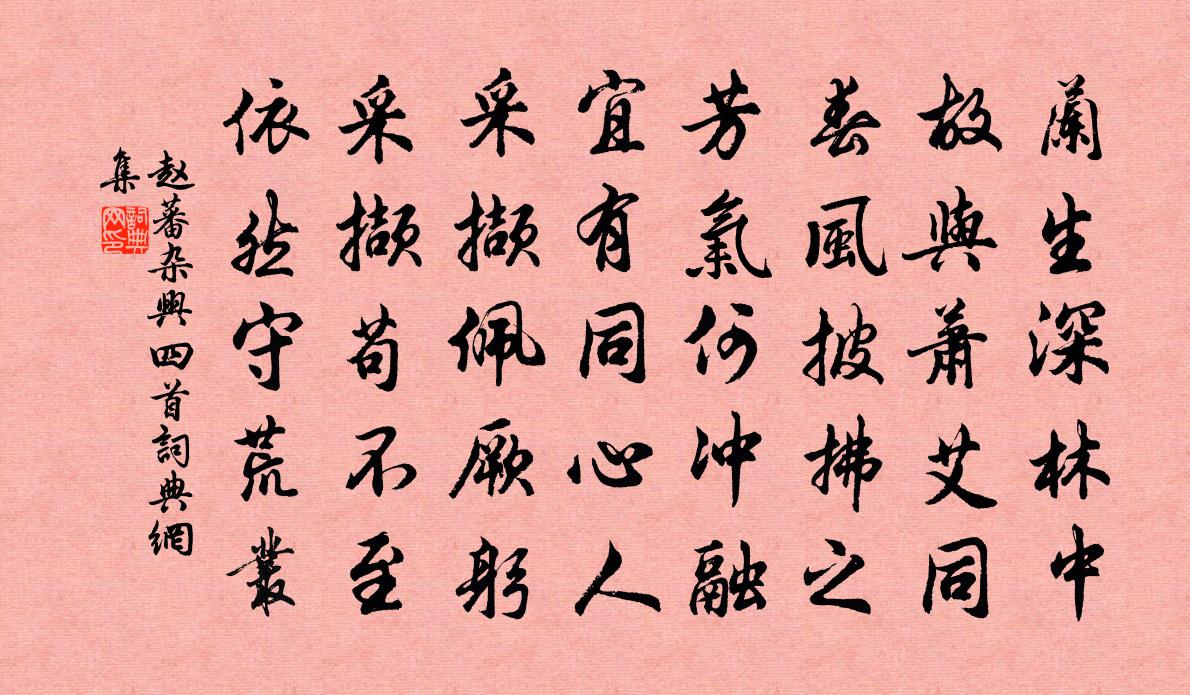 蘭生深林中
故與蕭艾同
春風披拂之
芳氣何沖融
宜有同心人
采擷佩厥躬
采擷苟不至
依然守荒叢
趙蕃杂興四首詞典網
集
詞典网印